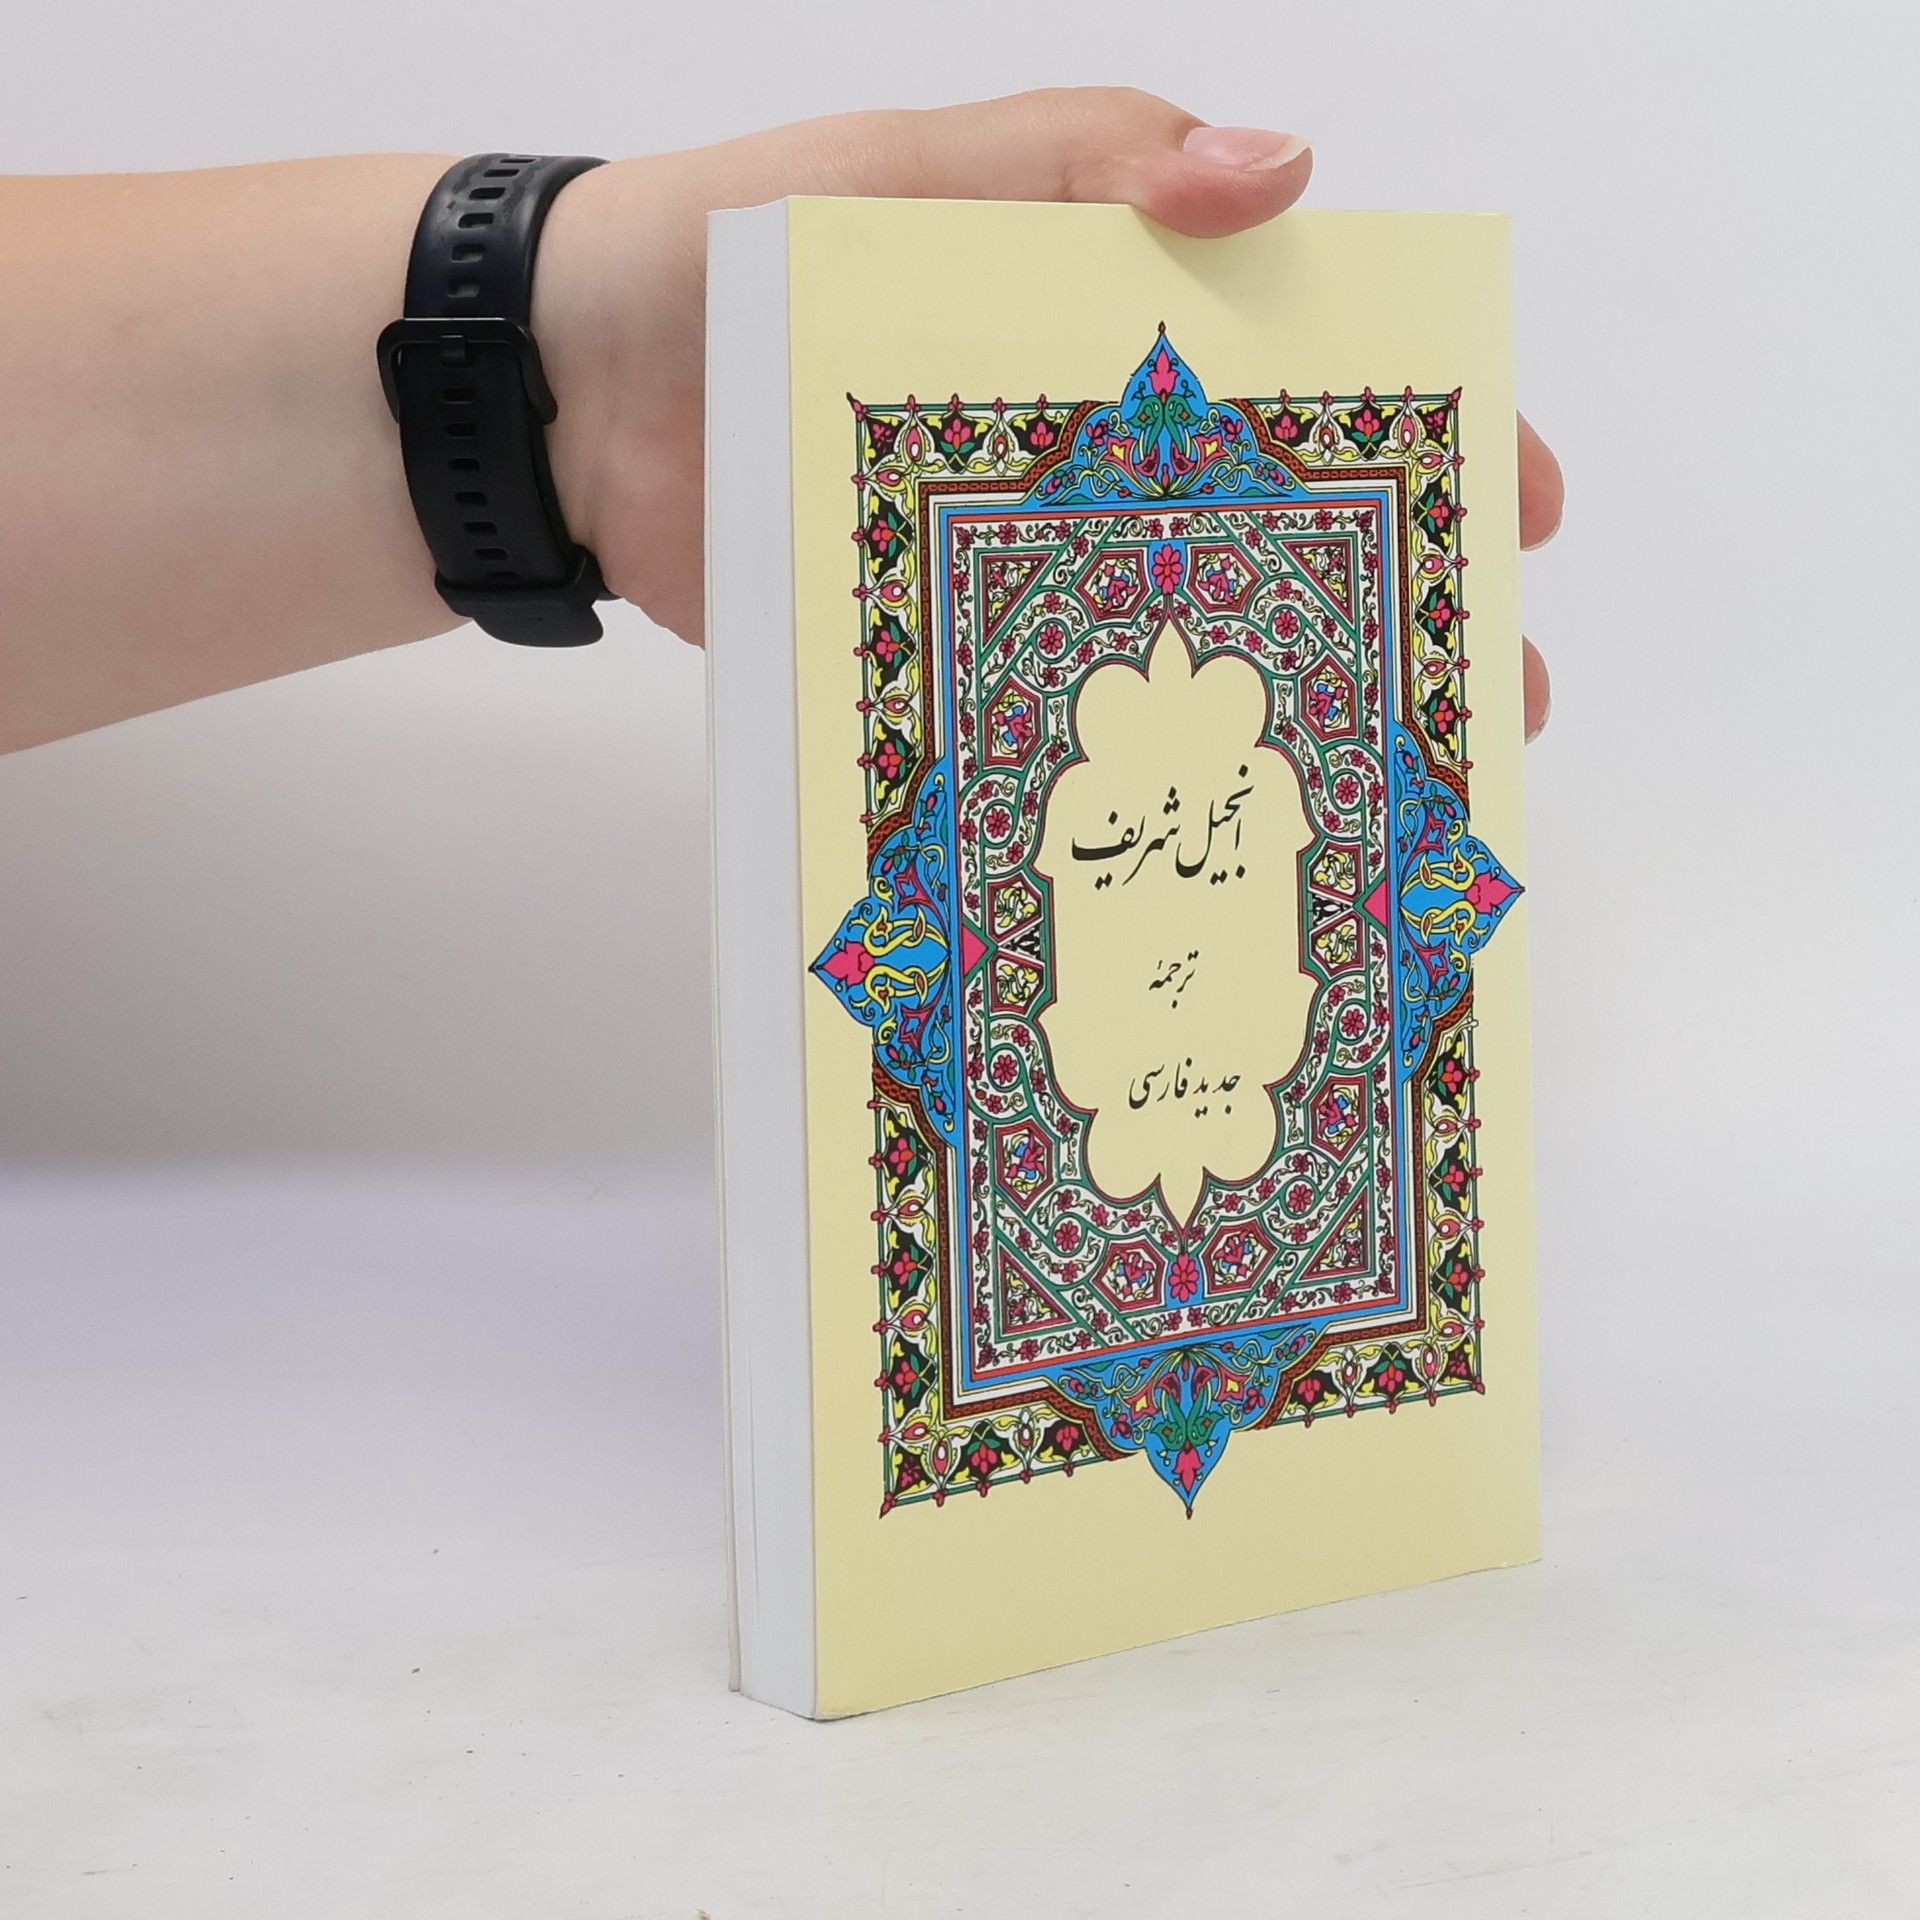 انجیل شریف
ترجمهٔ
جدید فارسی